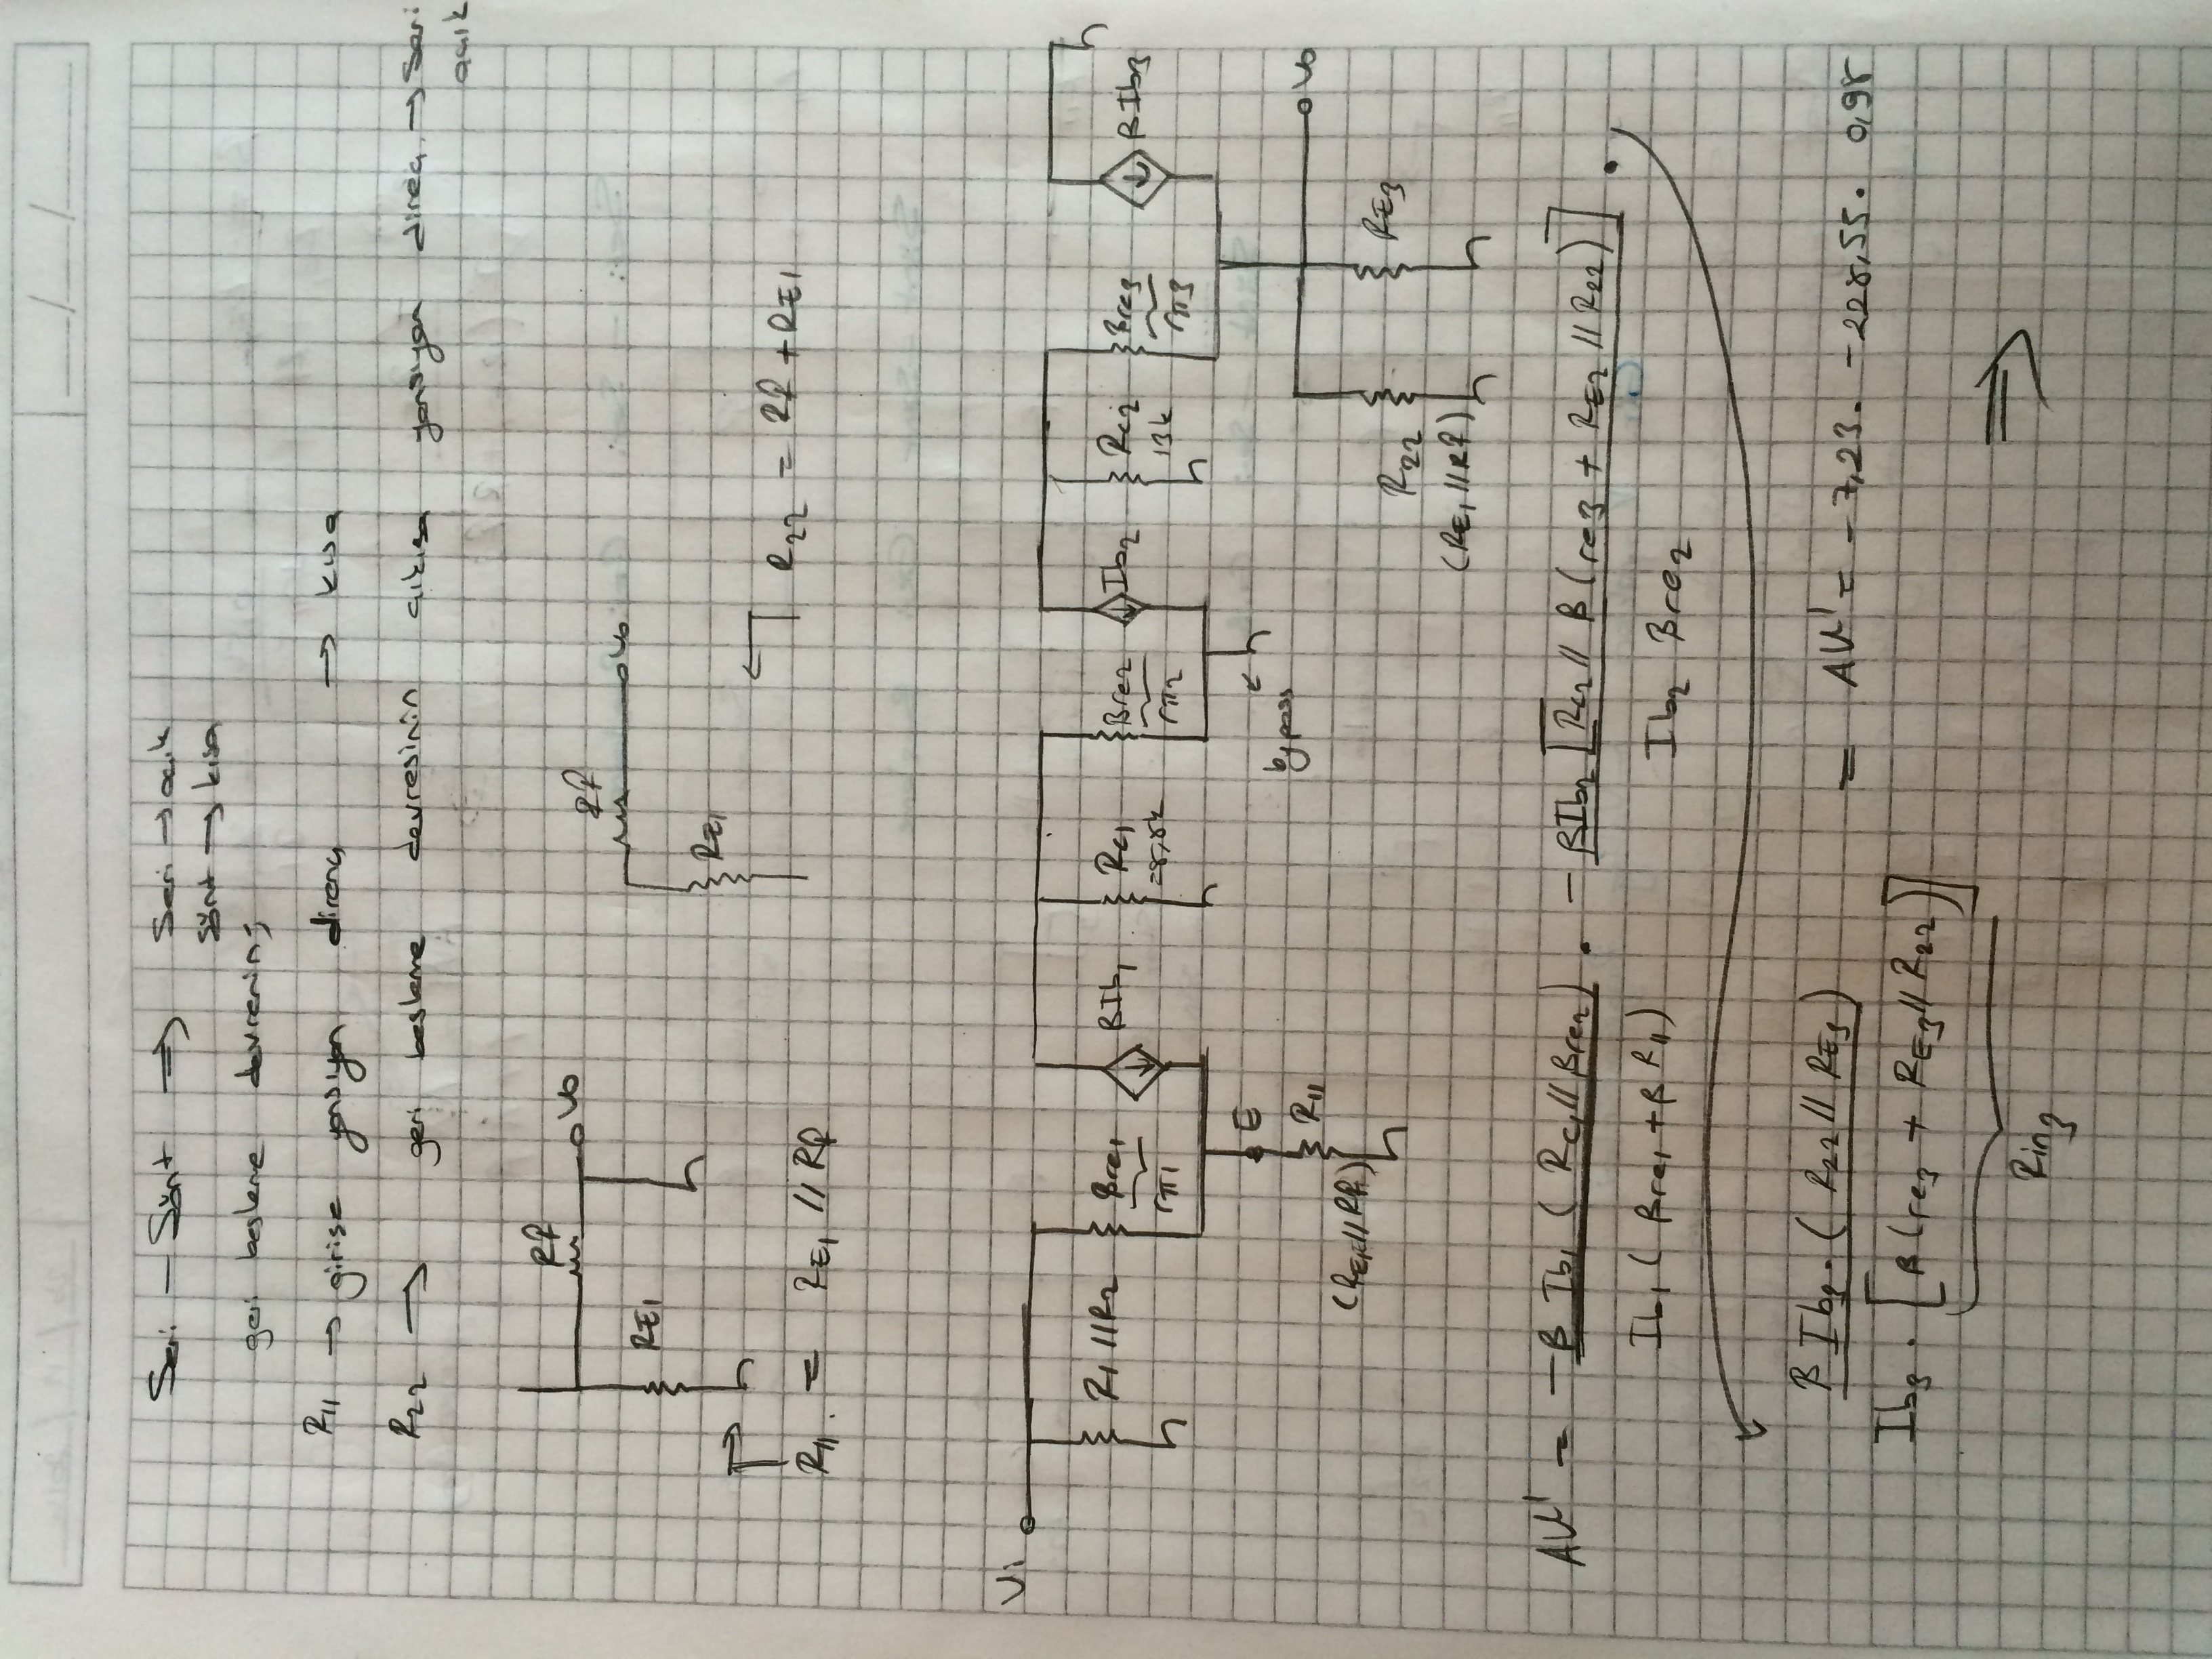 Seri – Şönt ⇒ Seri → açık
Şönt → kısa
geri besleme devrenin;
R11 → girişe yansıyan direnç → kısa
R22 → geri besleme devresinin çıkışa yansıyan direnç → Seri
açık
Rf
Vo
RE1
R11 = RE1 // Rf
Rf
Vo
RE1
R22 = Rf + RE1
Vi
R1 // R2
βre1
rπ1
βIb1
Rc1
=8,8k
βre2
rπ2
Ib2
Rc2
13k
βre3
rπ3
βIb3
E
R11
(RE1 // Rf)
bypass
Vo
R22
(RE1 // Rf)
RE3
AV' = -β Ib1 ( Rc1 // βre2) . -βIb2 [Rc2 // β (re3 + RE2 // R22)] .
Ib1 ( βre1 + β R11) Ib2 βre2
β Ib3 . ( R22 // RE3) = AV' = -7,23 . -228,55 . 0,98
Ib3 . [β (re3 + RE3 // R22)]
Rin3
⇒